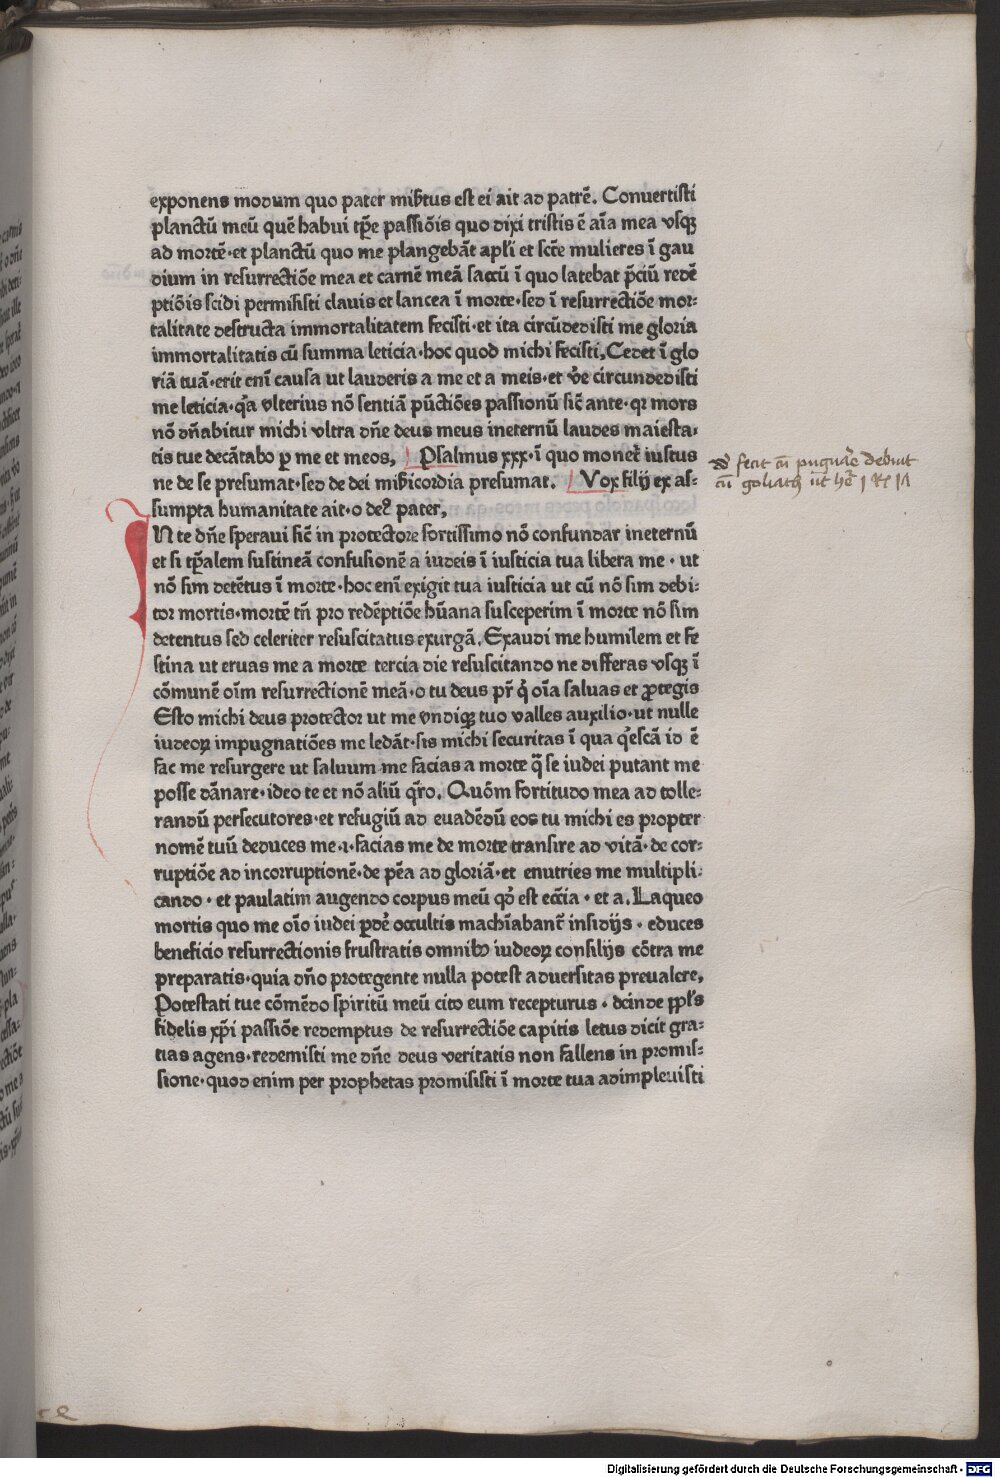 exponens modum quo pater misertus est ei ait ad patrē. Conuertisti
planctū meū quē habui tp̄e passiōis quo dixi tristis ē aīa mea vsqꝫ
ad mortē·et planctū quo me plangebāt apl̄i et sctē mulieres ī gau
dium in resurrectiōe mea et carnē meā saccū ī quo latebat p̄ciū redē
ptiōis scidi permisisti clauis et lancea ī morte·sed ī resurrectiōe mor⸗
talitate destructa immortalitatem fecisti·et ita circūdedisti me gloria
immortalitatis cū summa leticia·hoc quod michi fecisti. Cedet ī glo
riā tuā·erit enī causa ut lauderis a me et a meis·et vē circundedisti
me leticia·q̄a vlterius nō sentiā pūctiōes passionū sic̄ ante·qꝛ mors
nō dn̄abitur michi vltra dn̄e deus meus ineternū laudes maiesta⸗
tis tue decātabo ꝑ me et meos. Psalmus xxx·ī quo monet̄ iustus
ne de se presumat·sed de dei mīs̄icordia presumat. Vox filij ex as⸗
sumpta humanitate ait·o des̄ pater.
IN te dn̄e speraui sic̄ in protectore fortissimo nō confundar ineternū
et si tp̄alem sustineā confusionē a iudeis ī iusticia tua libera me · ut
nō sim detētus ī morte·hoc enī exigit tua iusticia ut cū nō sim debi⸗
tor mortis·mortē tn̄ pro redēptiōe hūana susceperim ī morte nō sim
detentus sed celeriter resuscitatus exurgā. Exaudi me humilem et fe
stina ut eruas me a morte tercia die resuscitando ne differas vsqꝫ ī
cōmunē oīm resurrectionē meā·o tu deus pr̄ q̇ oīa saluas et ꝓtegis
Esto michi deus protector ut me vndiqꝫ tuo valles auxilio·ut nulle
iudeoꝝ impugnatiōes me ledāt·sis michi securitas ī qua q̇escā id ē
fac me resurgere ut saluum me facias a morte q̄ se iudei putant me
posse dānare·ideo te et nō aliū q̄ro. Quōm fortitudo mea ad tolle⸗
randū persecutores·et refugiū ad euadēdū eos tu michi es propter
nomē tuū deduces me·i·facias me de morte transire ad vitā·de cor⸗
ruptiōe ad incorruptionē·de pēa ad gloriā·et enutries me multipli⸗
cando · et paulatim augendo corpus meū qd̄ est ecc̄ia · et a. Laqueo
mortis quo me oīo iudei ꝑdē occultis machīabant̄ insidijs · educes
beneficio resurrectionis frustratis omnibꝫ iudeoꝝ consilijs cōtra me
preparatis·quia dn̄o protegente nulla potest aduersitas preualere.
Potestati tue cōmēdo spiritū meū cito eum recepturus · deinde ppl̄s
fidelis xp̄i passiōe redemptus de resurrectiōe capitis letus dicit gra⸗
tias agens·redemisti me dn̄e deus veritatis non fallens in promis⸗
sione·quod enim per prophetas promisisti ī morte tua adimpleuisti
fecit cū pugnar̄e debuit
cū goliath ut